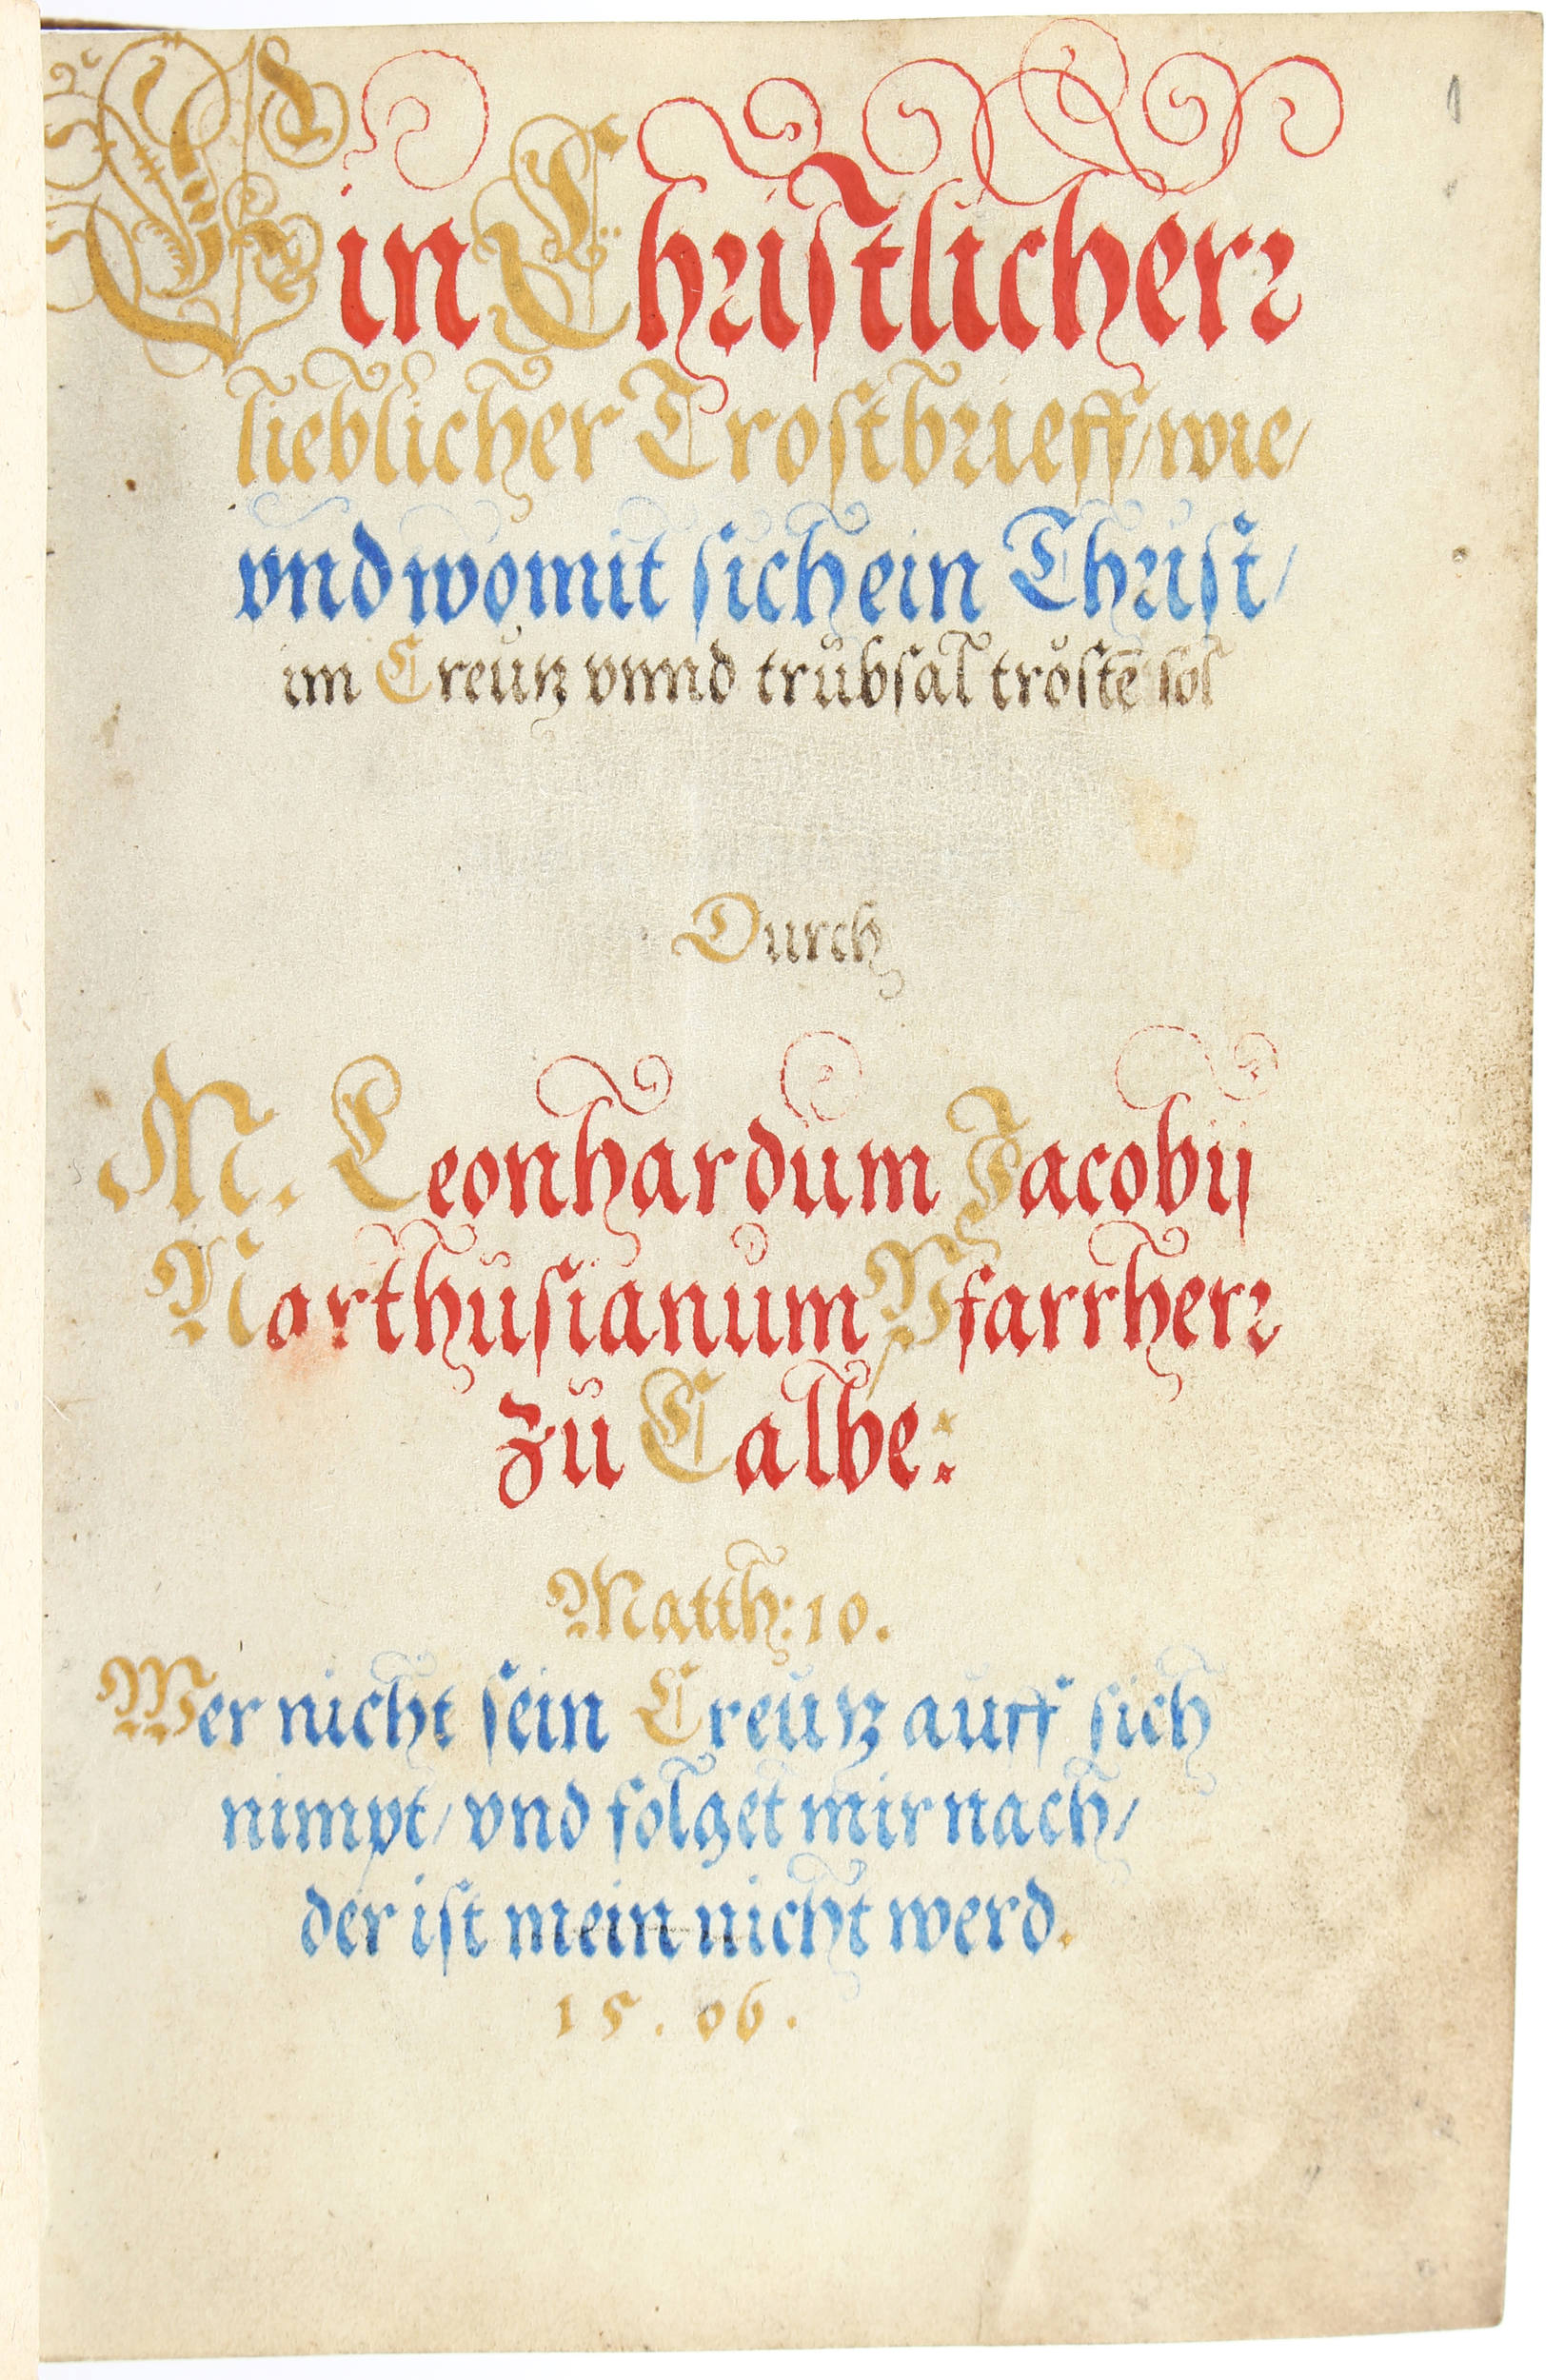 Ein Christlicherr
lieblicher Trostbrieff/ wie/
vnd womit sich ein Christ/
im Creutz vnnd trübsal tröstē sol
Durch
M. Leonhardum Jacobij
Northusianum Pfarrherr
zu Calbe:
Matth: 10.
Wer nicht sein Creutz auff sich
nimpt/ vnd folget mir nach/
der ist mein nicht werd.
15. 06.